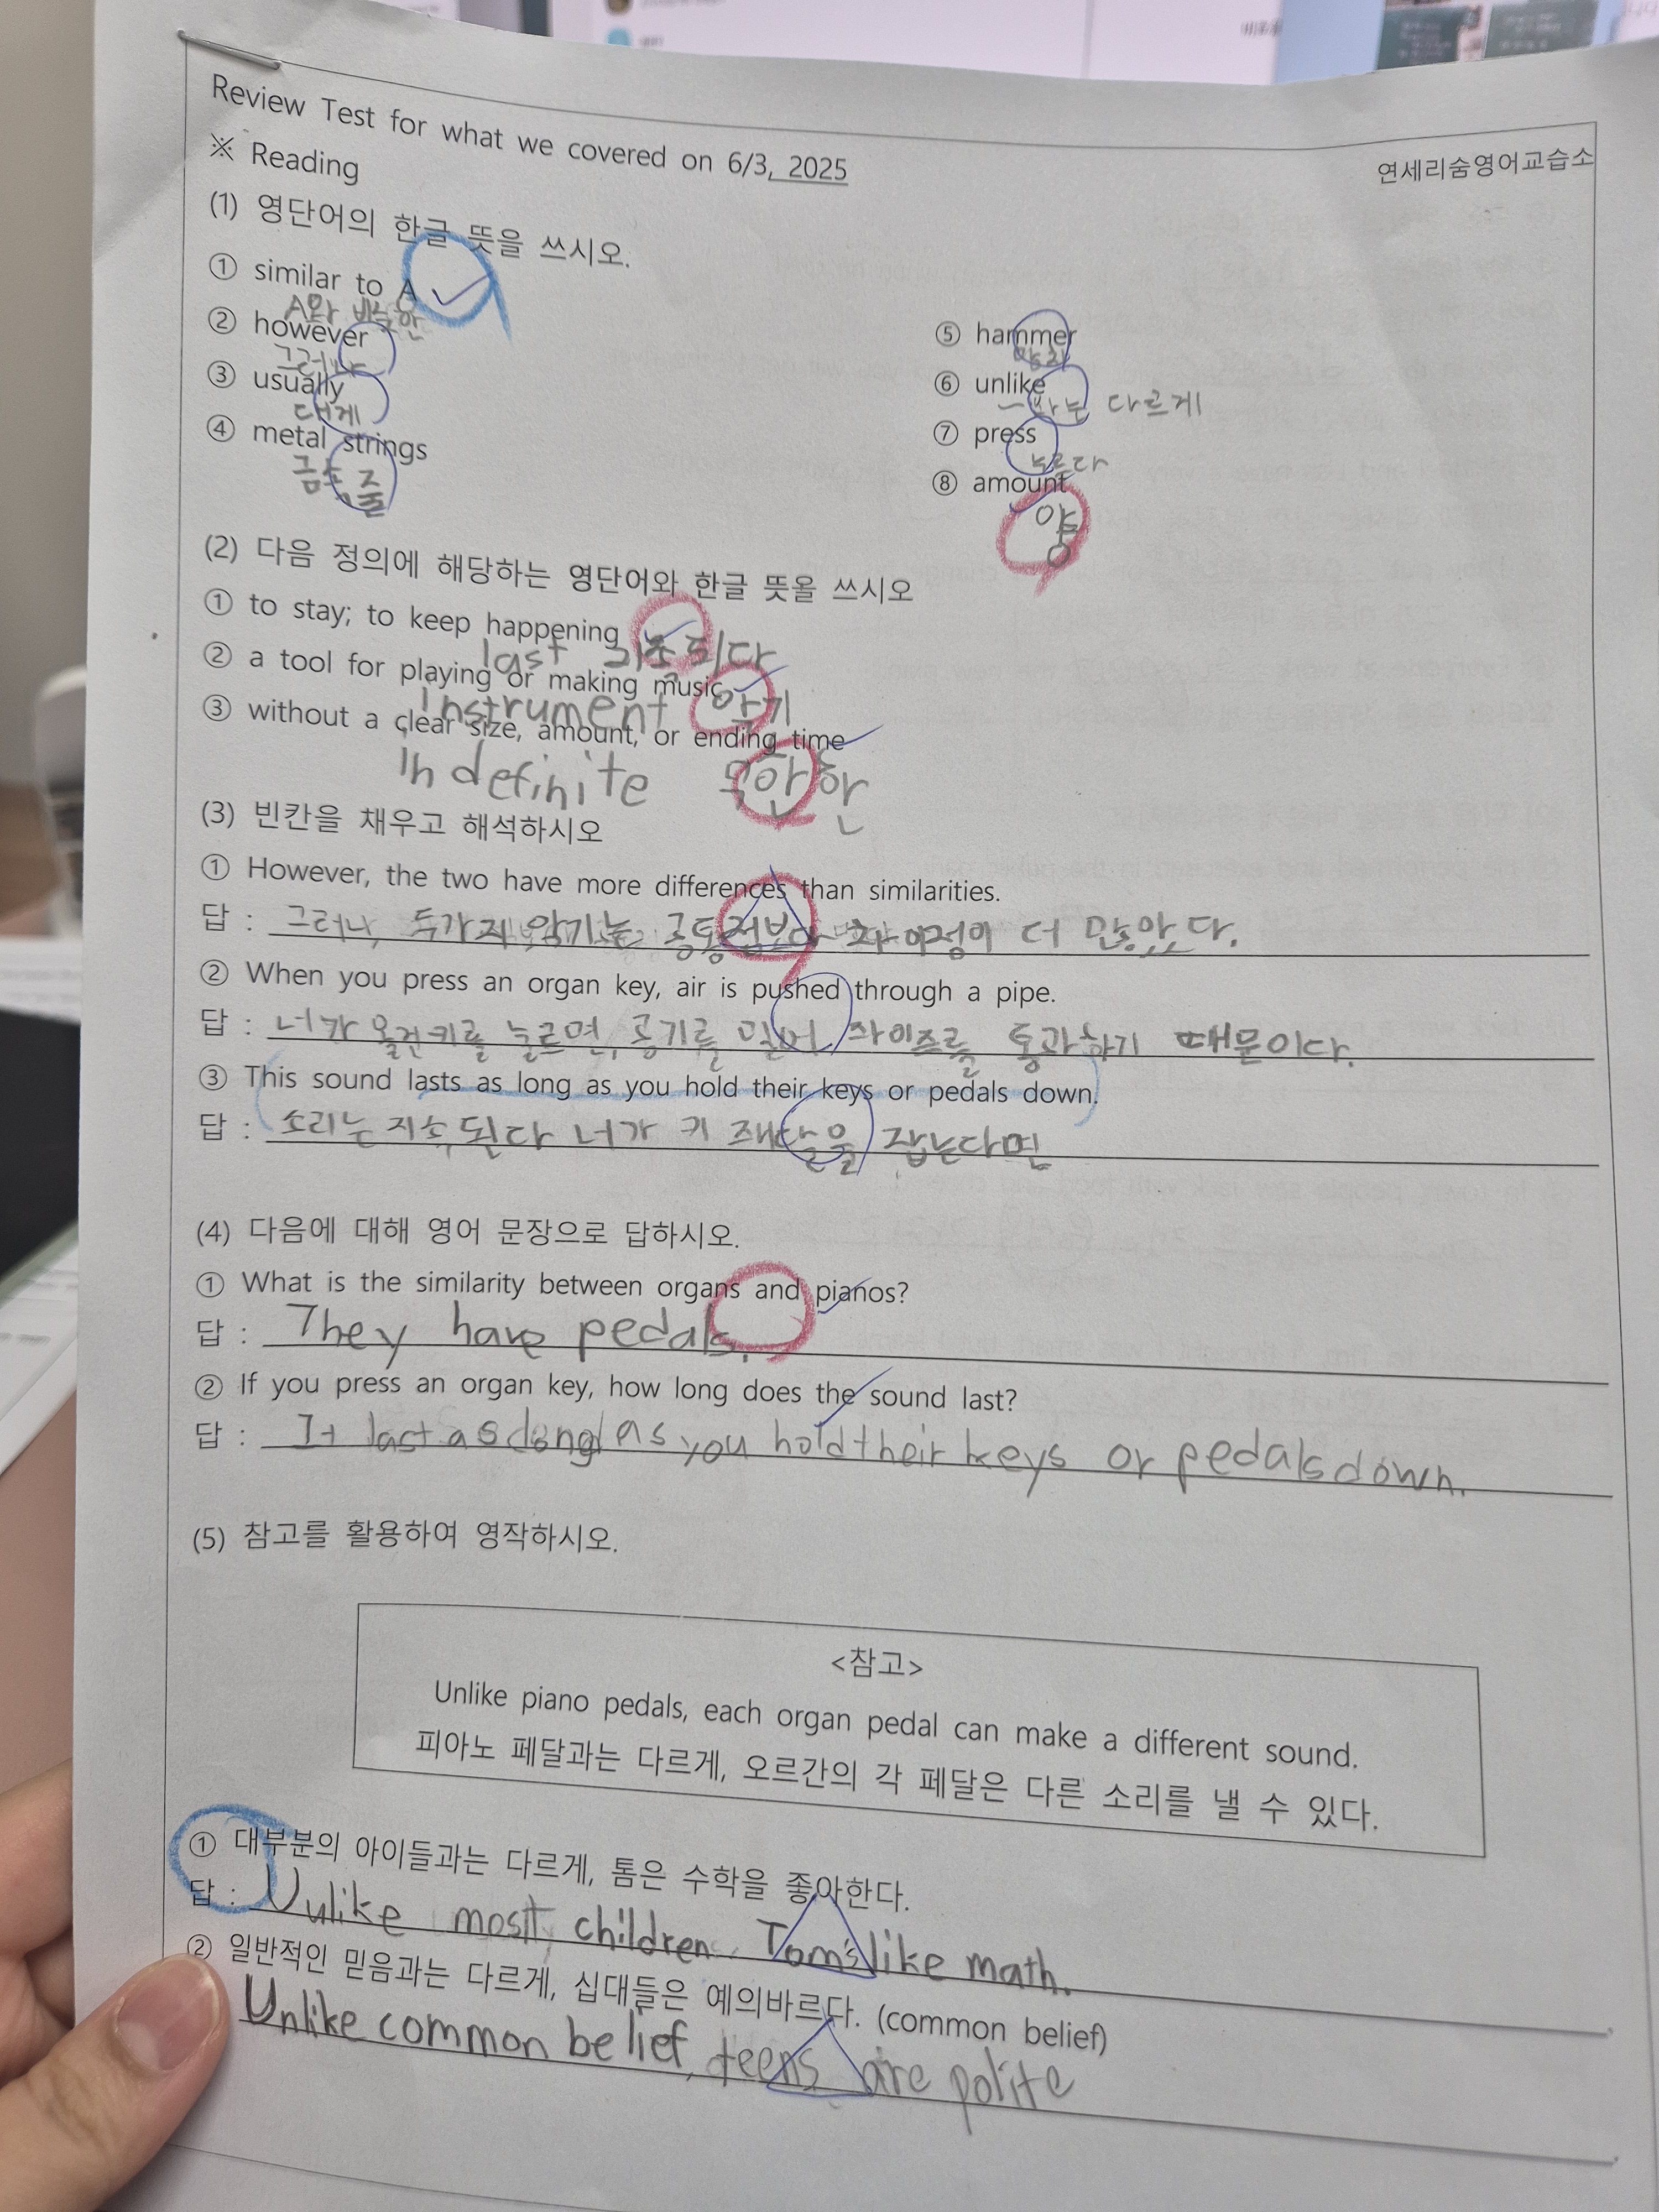 Review Test for what we covered on 6/3, 2025
연세리숨영어교습소
※ Reading
(1) 영단어의 한글 뜻을 쓰시오.
① similar to A
A와 비슷한
② however
그러나
③ usually
대게
④ metal strings
금속 줄
⑤ hammer
망치
⑥ unlike
~와는 다르게
⑦ press
누르다
⑧ amount
양
(2) 다음 정의에 해당하는 영단어와 한글 뜻올 쓰시오
① to stay; to keep happening
last 지속되다
② a tool for playing or making music
Instrument 악기
③ without a clear size, amount, or ending time
Indefinite 무한한
(3) 빈칸을 채우고 해석하시오
① However, the two have more differences than similarities.
답 : 그러나, 두가지 악기는 공통점보다 차이점이 더 많았다.
② When you press an organ key, air is pushed through a pipe.
답 : 너가 올건키를 눌르면, 공기를 밀어 파이프를 통과하기 때문이다.
③ This sound lasts as long as you hold their keys or pedals down.
답 : 소리는 지속된다 너가 키 패달을 잡는다면
(4) 다음에 대해 영어 문장으로 답하시오.
① What is the similarity between organs and pianos?
답 : They have pedals.
② If you press an organ key, how long does the sound last?
답 : It last as long as you hold their keys or pedals down.
(5) 참고를 활용하여 영작하시오.
<참고>
Unlike piano pedals, each organ pedal can make a different sound.
피아노 페달과는 다르게, 오르간의 각 페달은 다른 소리를 낼 수 있다.
① 대부분의 아이들과는 다르게, 톰은 수학을 좋아한다.
답 : Unlike most children, Tom's like math.
② 일반적인 믿음과는 다르게, 십대들은 예의바르다. (common belief)
Unlike common belief, teens are polite